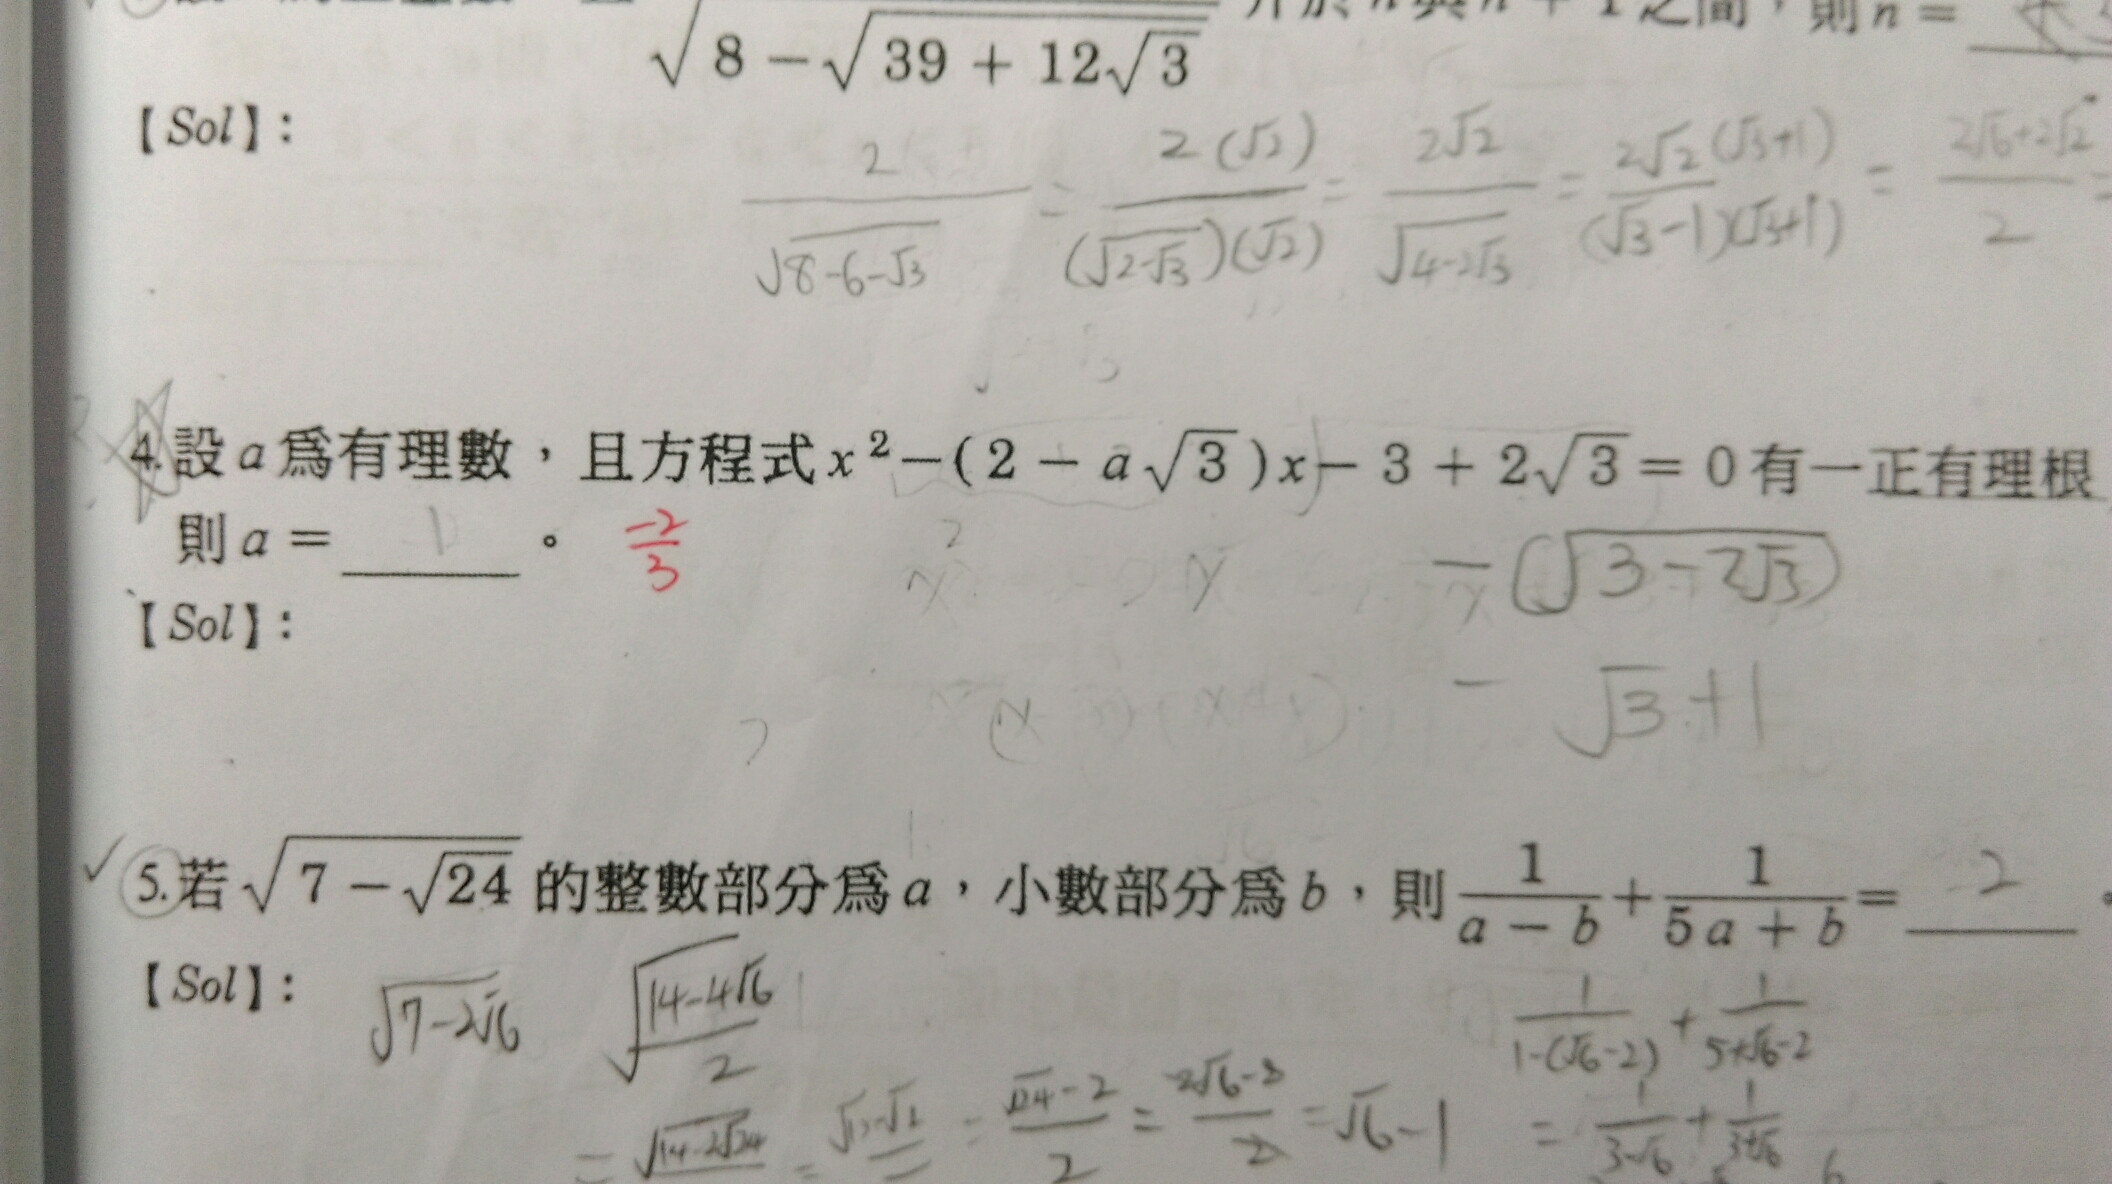 介於 n 與 n + 1 之間，則 n =
√(8 − √(39 + 12√3))
【Sol】:
2/√(8-6-√3) = 2(√2)/((√2-√3)(√2)) = 2√2/√(4-2√3) = 2√2(√3+1)/((√3-1)(√3+1)) = (2√6+2√2)/2 =
4. 設 a 為有理數，且方程式 x² − (2 − a√3)x − 3 + 2√3 = 0 有一正有理根
則 a = 1 。 -2/3
-(√(3-2√3))
【Sol】:
- √3+1
5. 若 √(7 − √24) 的整數部分為 a，小數部分為 b，則 1/(a − b) + 1/(5a + b) = 2 。
【Sol】: √(7-2√6) √((14-4√6)/2) 1/(1-(√6-2)) + 1/(5+√6-2)
= √(14-2√24) = = (√24-2)/2 = = √6-1 = 1/(3-√6) + 1/(3+√6)
6